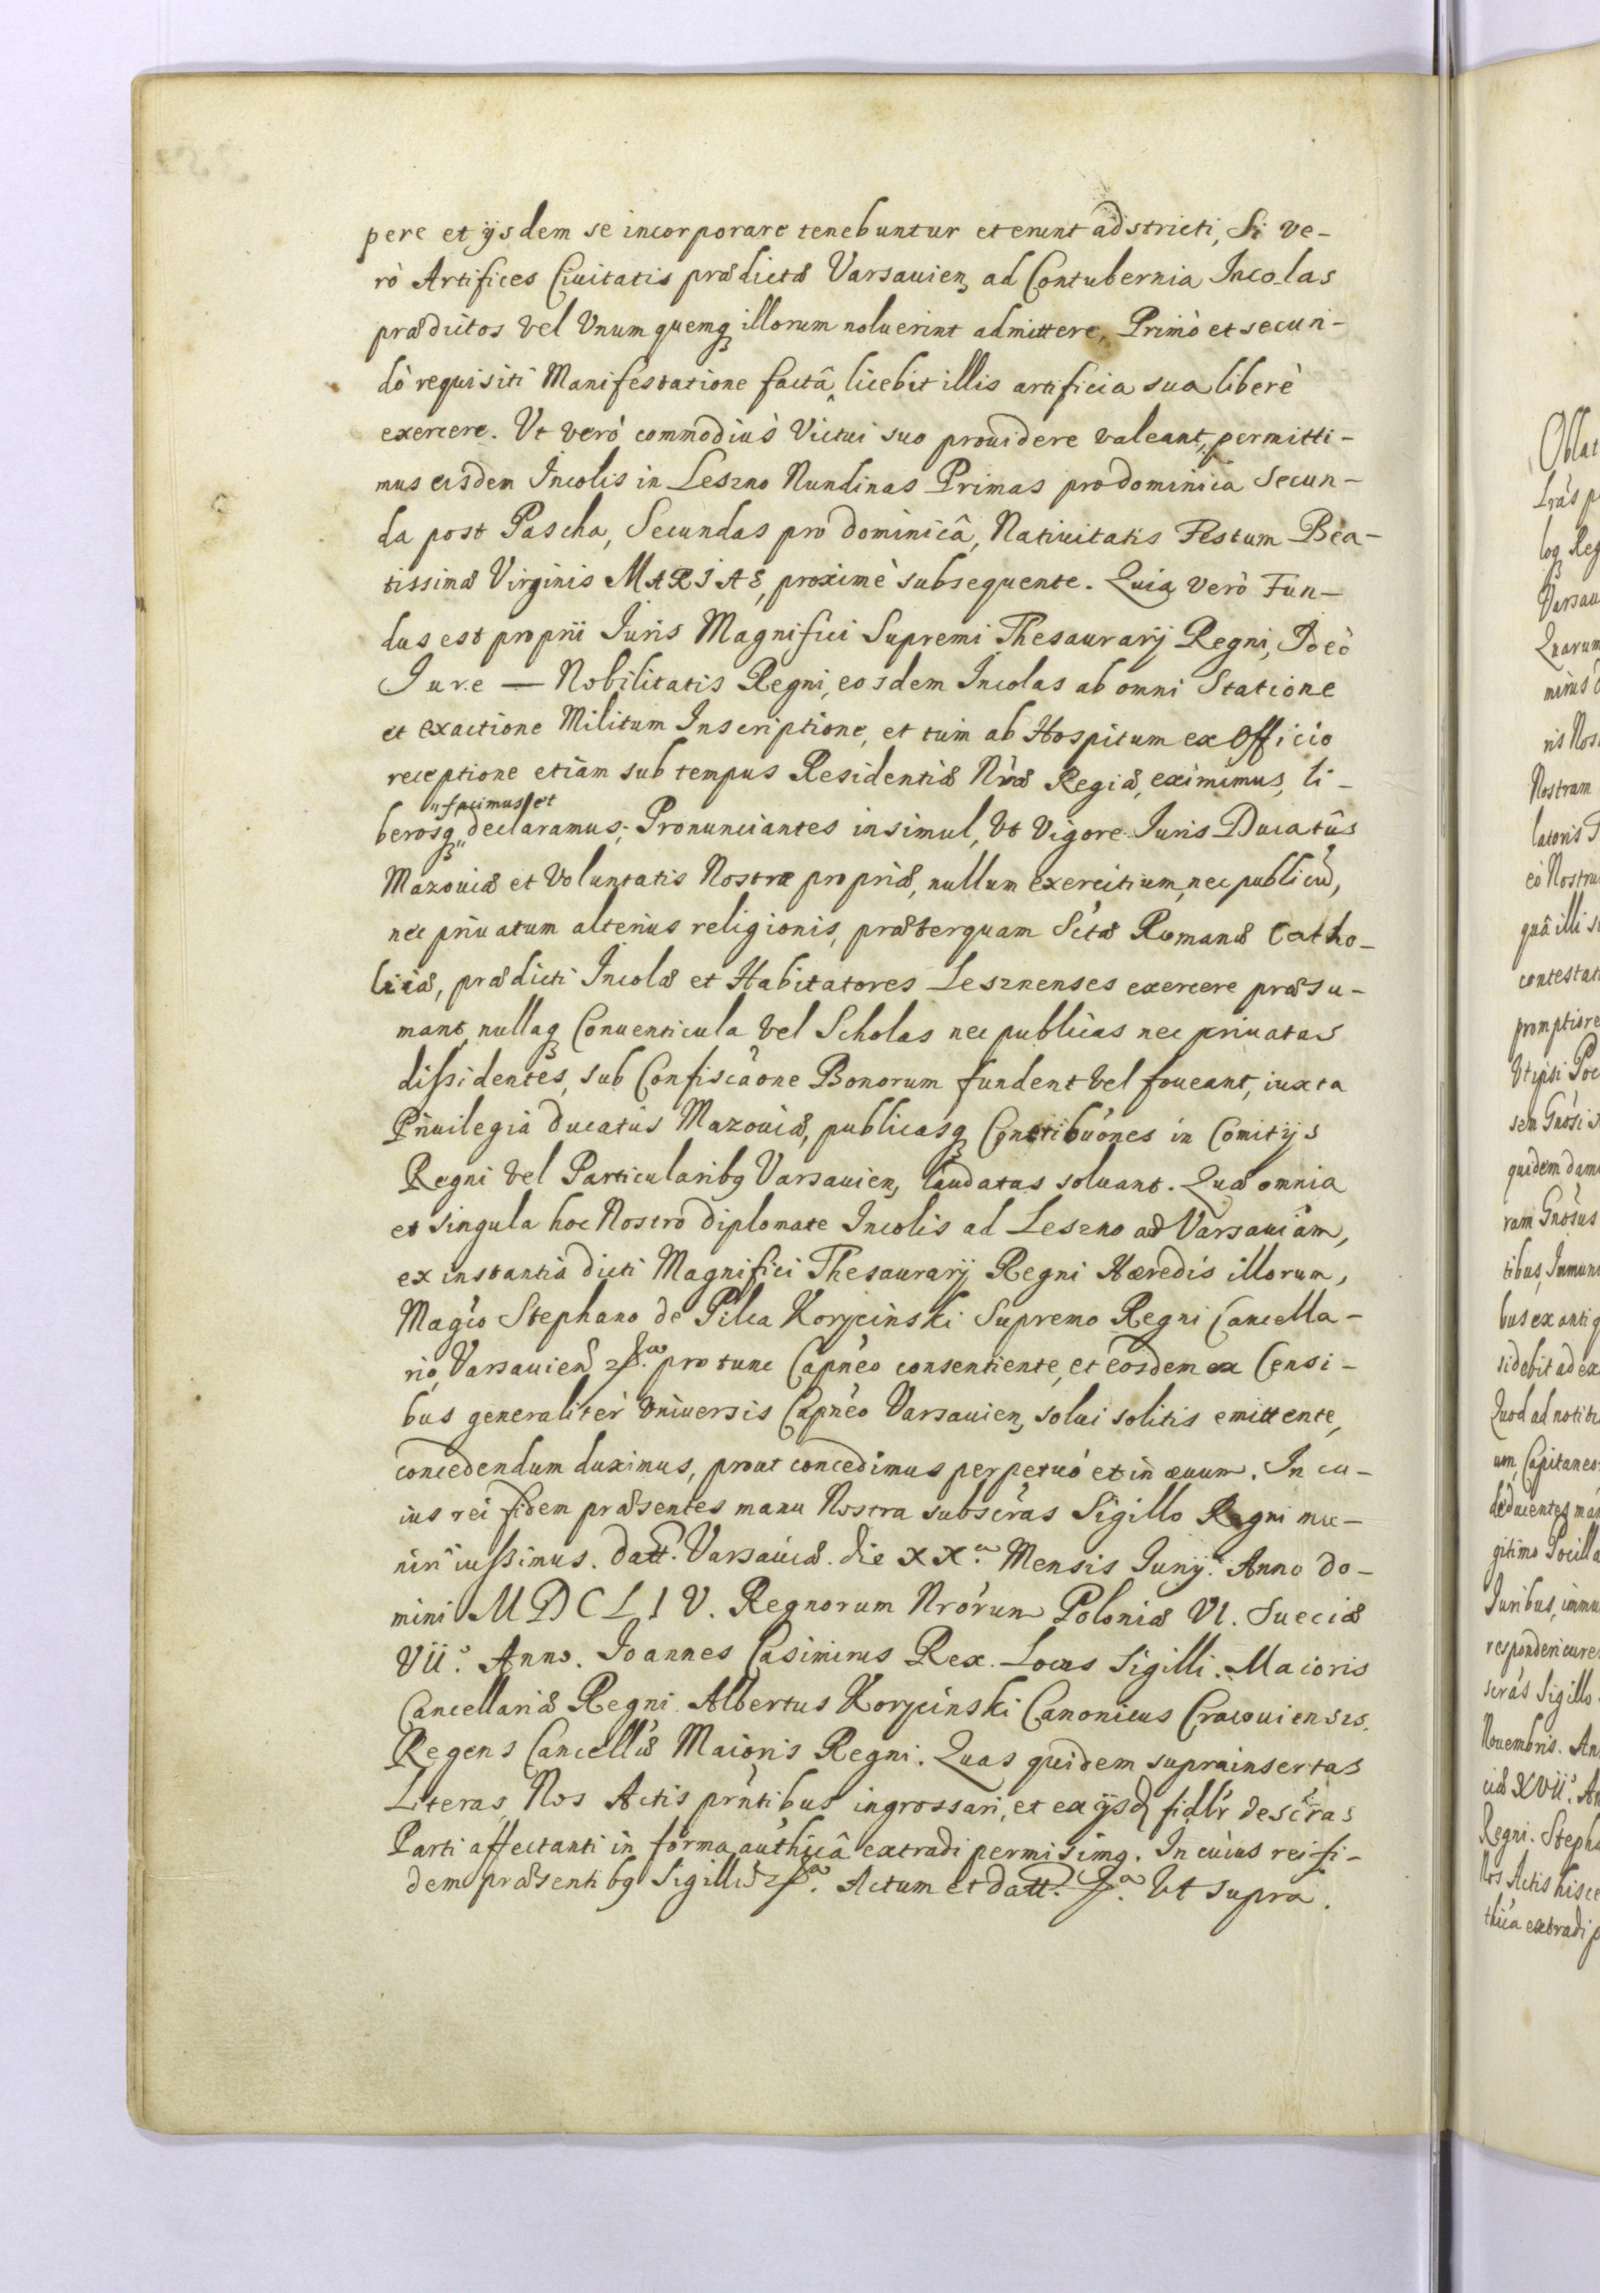 pere et ijsdem se incorporare tenebuntur et erunt adstricti, Si ve-
rò Artifices Ciuitatis prædictæ Varsauien, ad Contubernia Incolas
prædictos vel Vnumquemq illorum noluerint admittere, Primò et secun-
dò requisiti Manifestatione factâ, licebit illis artificia sua liberè
exercere. Vt verò commodiùs Victui suo prouidere valeant, permitti-
mus eisdem Incolis in Leszno Nundinas Primas pro dominica Secun-
da post Pascha, Secundas pro dominicâ, Natiuitatis Festum Bea-
tissimæ Virginis MARIAE, proximè subsequente. Quia verò Fun-
dus est proprii Iuris Magnifici Supremi Thesaurarij Regni, Ideò
Jure — Nobilitatis Regni, eosdem Incolas ab omni Statione
et exactione Militum Inscriptione, et tum ab Hospitum ex Officio
receptione etiam sub tempus Residentiæ Nræ Regiæ, eximimus, li-
„facimus et
berosq„ declaramus; Pronunciantes insimul, Vt Vigore Iuris Ducatûs
Mazouiæ et Voluntatis Nostræ propriæ, nullum exercitium, nec publicũ,
nec priuatum alterius religionis, præterquam Sctæ Romanæ Catho-
licæ, prædicti Incolæ et Habitatores Lesznenses exercere præsu-
mant, nullaq Conuenticula vel Scholas nec publicas nec priuatas
dissidentes, sub Confiscaone Bonorum fundent vel foueant, iuxta
Priuilegia ducatus Mazouiæ, publicasq Contribuones in Comitijs
Regni vel Particularibq Varsauien, laudatas soluant. Quæ omnia
et singula hoc Nostro diplomate Incolis ad Leszno ad Varsauiam,
ex instantia dicti Magnifici Thesaurarij Regni Hæredis illorum,
Magco Stephano de Pilca Korycinski Supremo Regni Cancella-
rio, Varsauien pro tunc Capneo consentiente, et eosdem ex Censi-
bus generaliter Vniuersis Capneo Varsauien, solui solitis emittente,
concedendum duximus, prout concedimus perpetuò et in æuum. In cu-
ius rei fidem præsentes manu Nostra subscras Sigillo Regni mu-
niri iussimus. Datt. Varsauiæ. die XX.a Mensis Junij. Anno Do-
mini MDCLIV. Regnorum Nrorum Poloniæ VI. Sueciæ
VII.o Anno. Joannes Casimirus Rex. Locus Sigilli. Maioris
Cancellariæ Regni. Albertus Korycinski Canonicus Cracouiensis.
Regens Cancellæ Maioris Regni. Quas quidem suprainsertas
Literas, Nos Actis prntibus ingrossari, et ex ijsd fidlr descras
Parti affectanti in forma authcâ extradi permisimq. In cuius rei fi-
dem præsentibq Sigillũ. Actum et datt. Vt supra.